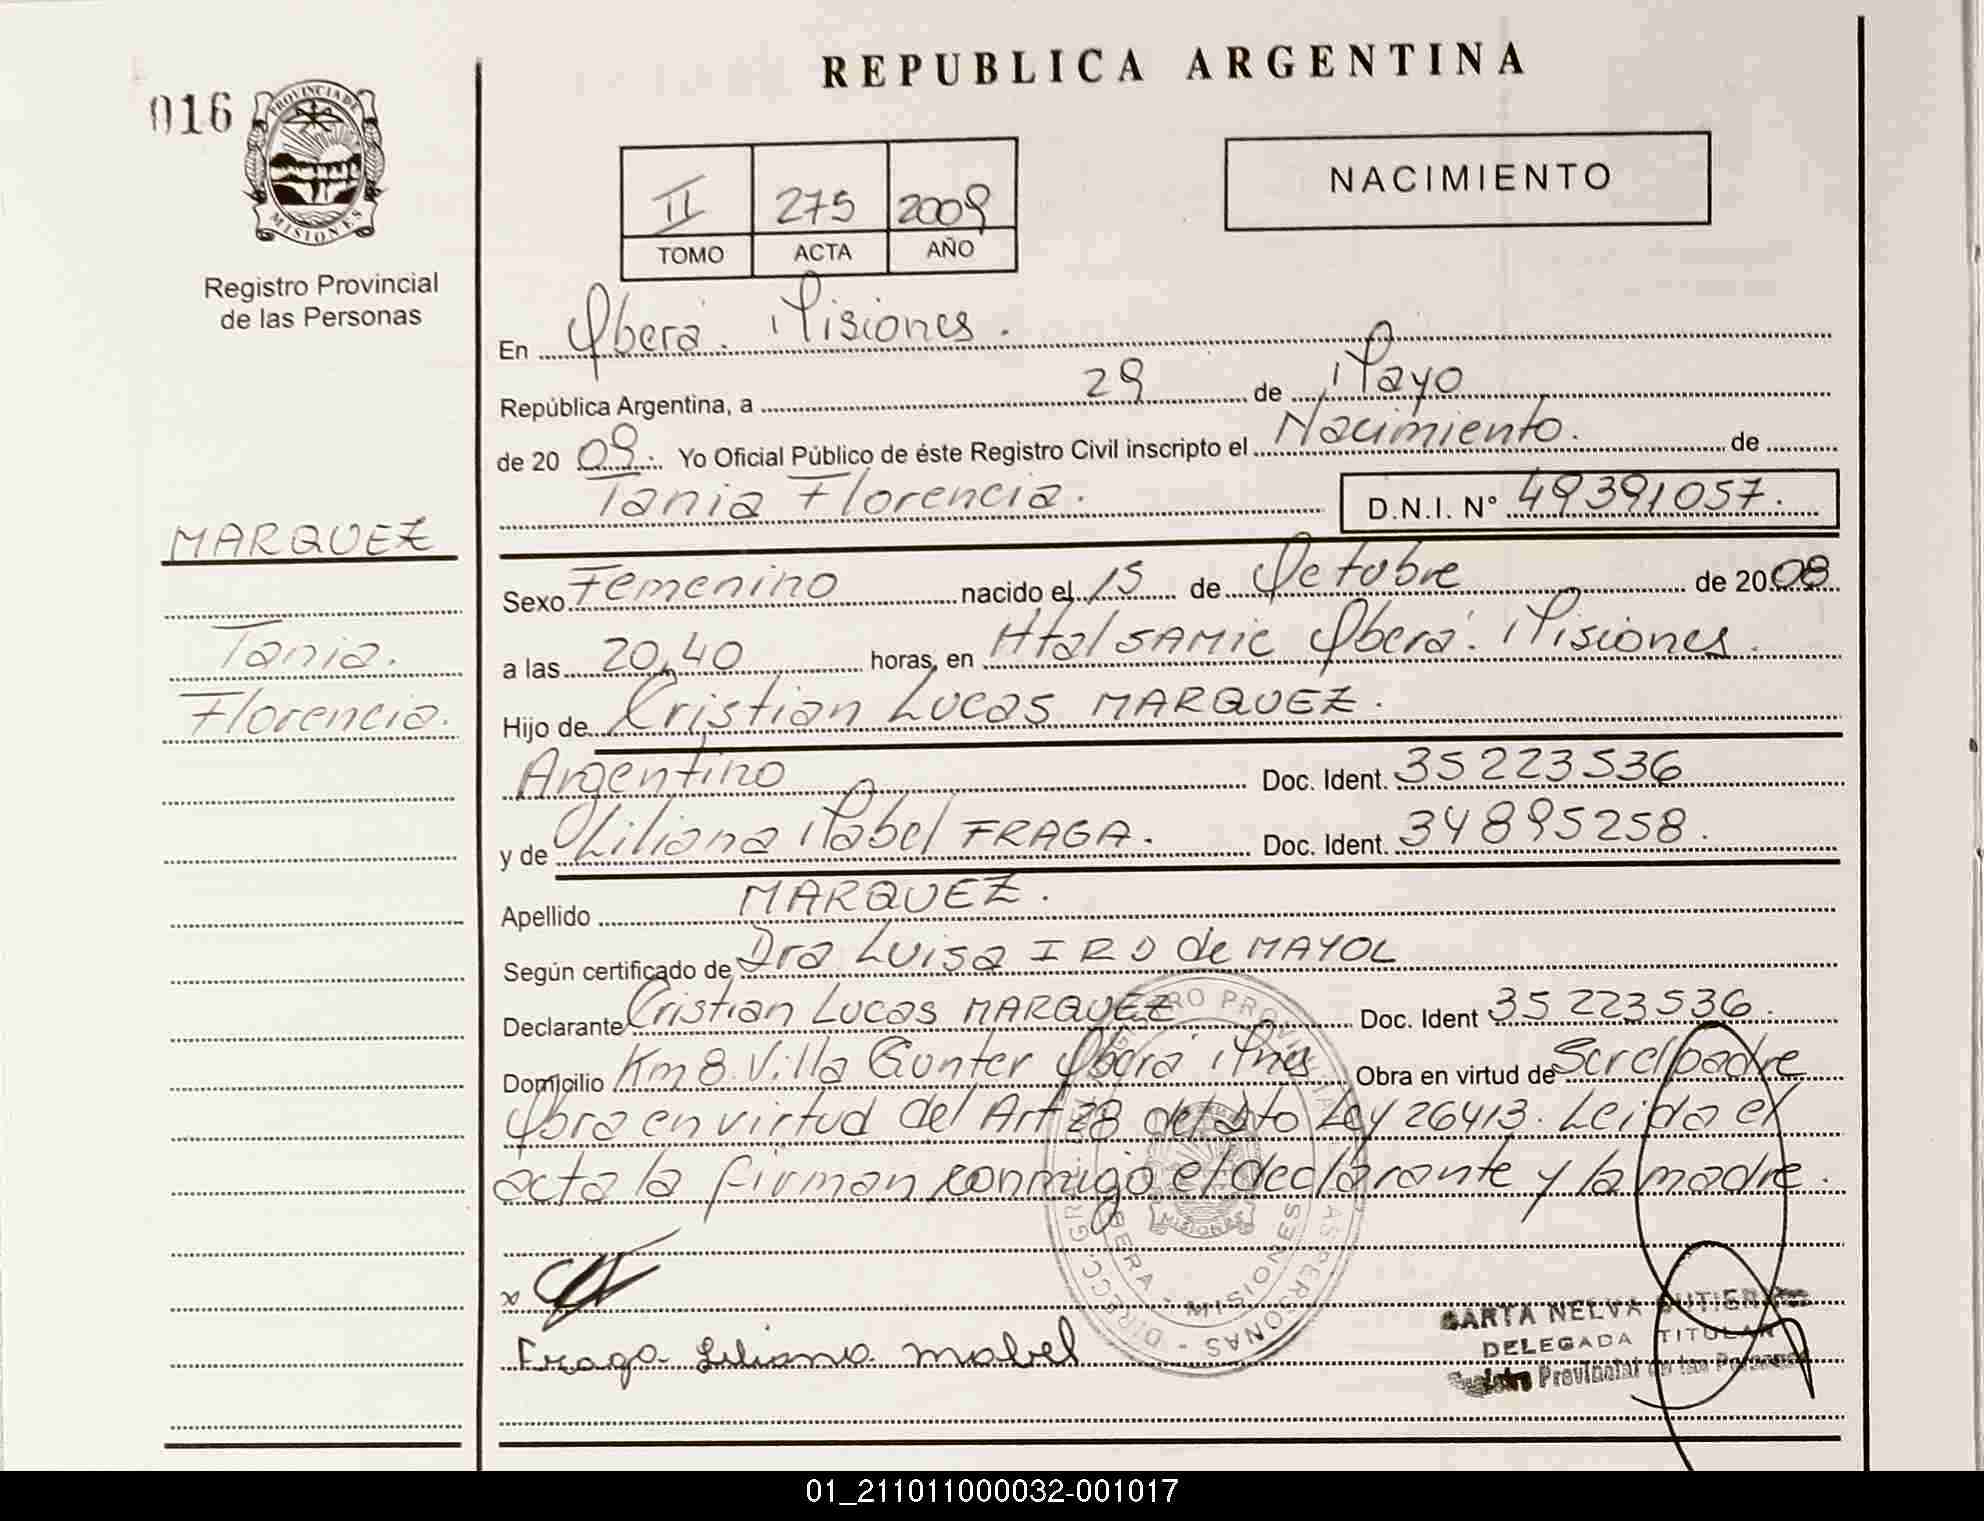 REPUBLICA ARGENTINA
016
PROVINCIA DE
MISIONES
Registro Provincial
de las Personas
NACIMIENTO
II 275 2009
TOMO ACTA AÑO
En Oberá. Misiones.
República Argentina, a 29 de Mayo
de 2009. Yo Oficial Público de éste Registro Civil inscripto el Nacimiento. de
Tania Florencia. D.N.I. Nº 49391057.
MARQUEZ
Tania.
Florencia.
Sexo Femenino nacido el 15 de Octubre de 2008
a las 20,40 horas, en Htal SAMIC Oberá. Misiones.
Hijo de Cristian Lucas MARQUEZ.
Argentino Doc. Ident. 35223536
y de Liliana Mabel FRAGA. Doc. Ident. 34895258.
Apellido MARQUEZ.
Según certificado de Dra Luisa I R D de MAYOL
Declarante Cristian Lucas MARQUEZ Doc. Ident 35 223536.
Domicilio Km 8 Villa Gunter Oberá Mnes Obra en virtud de Ser el padre
Obra en virtud del Art 28 del Dto Ley 26413. Leida el
acta la firman conmigo el declarante y la madre.
x
Fraga Liliana Mabel
PROVINCIAL DE LAS PERSONAS - DIRECC GRAL
OBERA - MISIONES
MISIONES
NELVA GUTIERREZ
DELEGADA TITULAR
Registro Provincial de las Personas
01_211011000032-001017